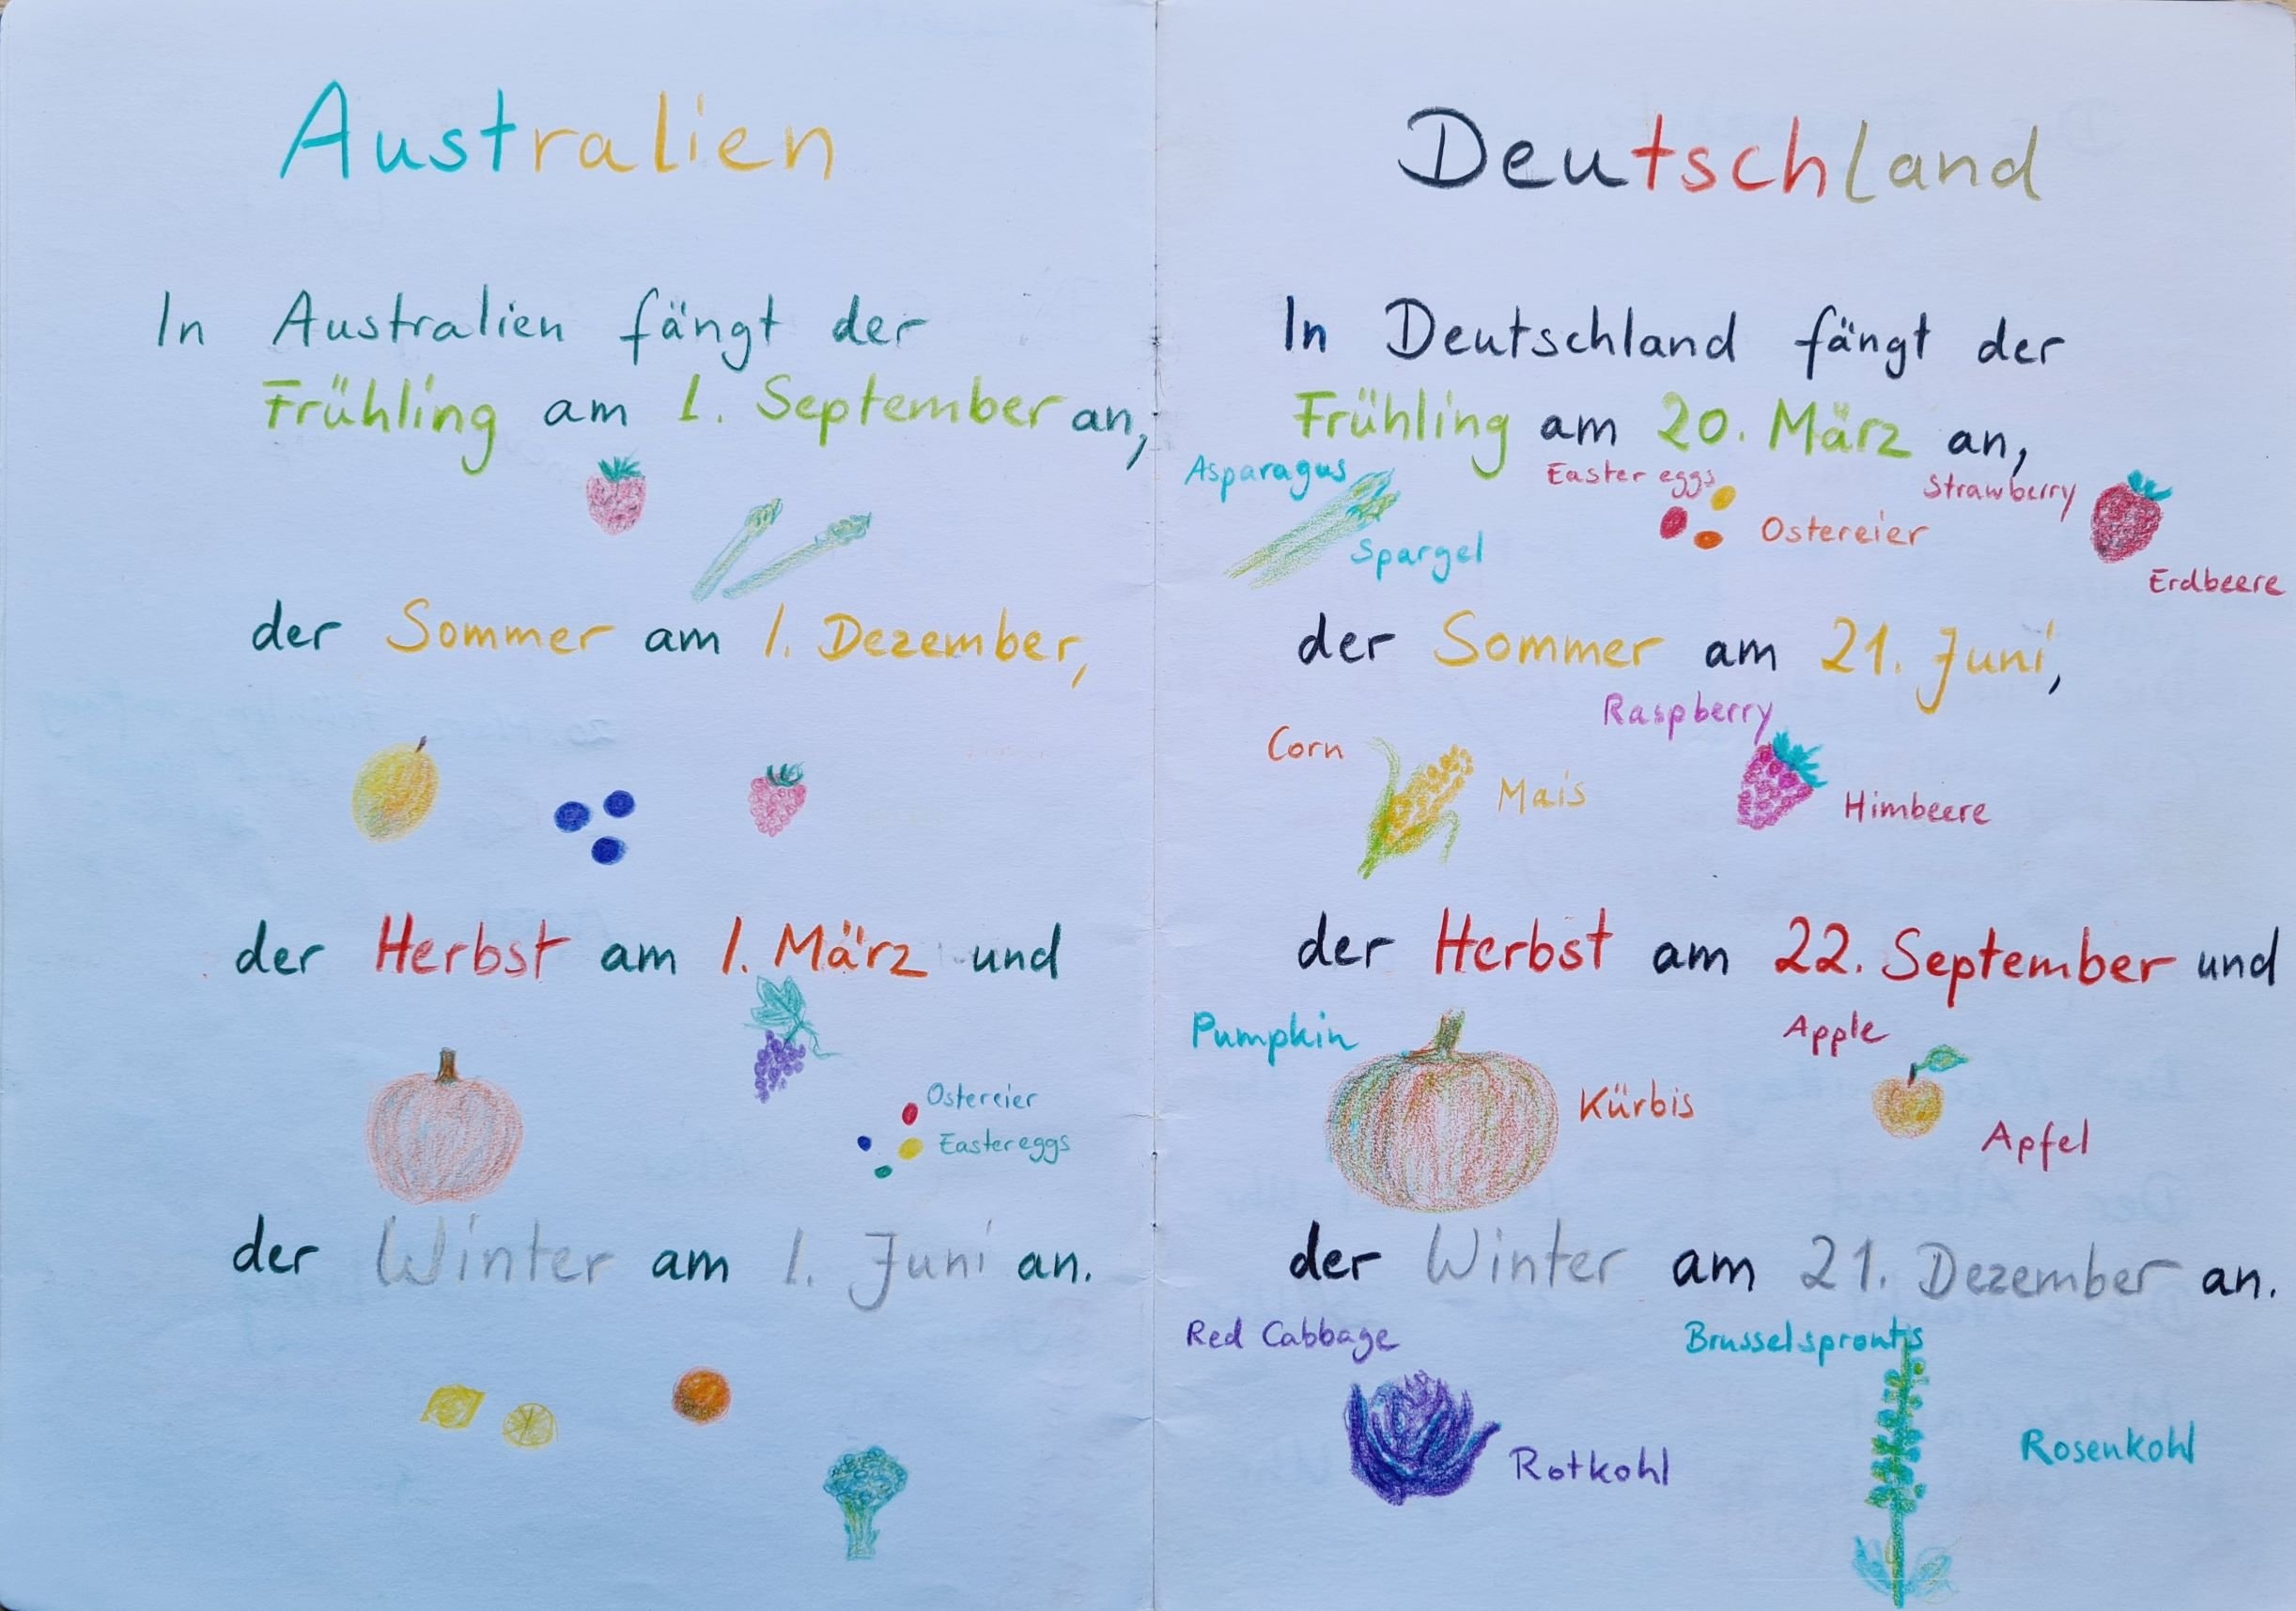 Australien
In Australien fängt der
Frühling am 1. September an,
der Sommer am 1. Dezember,
der Herbst am 1. März und
Ostereier
Easter eggs
der Winter am 1. Juni an.
Deutschland
In Deutschland fängt der
Frühling am 20. März an,
Asparagus
Spargel
Easter eggs
Ostereier
Strawberry
Erdbeere
der Sommer am 21. Juni,
Corn
Mais
Raspberry
Himbeere
der Herbst am 22. September und
Pumpkin
Kürbis
Apple
Apfel
der Winter am 21. Dezember an.
Red Cabbage
Rotkohl
Brusselsprouts
Rosenkohl